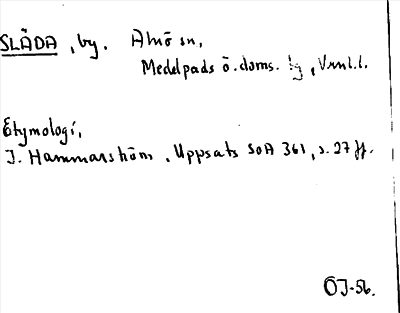 SLÄDA, by. Alnö sn,
Medelpads ö. doms. lg, Vrnl. l.
Etymologi,
I. Hammarström, Uppsats SOA 361, s. 27 ff.
ÖJ-56.